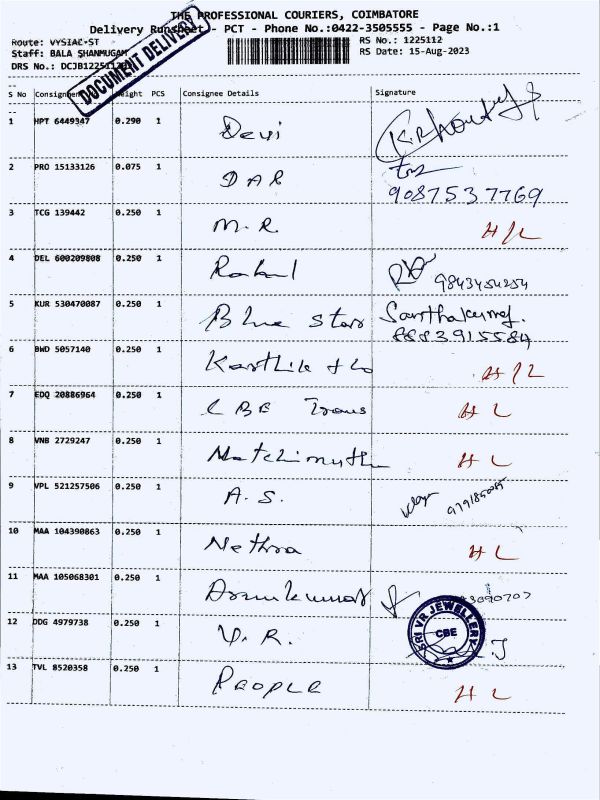 THE PROFESSIONAL COURIERS, COIMBATORE
Delivery Runsheet - PCT - Phone No.:0422-3505555 - Page No.:1
Route: VYSIAL-ST RS No.: 1225112
Staff: BALA SHANMUGAM RS Date: 15-Aug-2023
DRS No.: DCJB1225112
DOCUMENT DELIVERY
S No Consignment Weight PCS Consignee Details Signature
1 HPT 6449347 0.290 1 Devi
2 PRO 15133126 0.075 1 DAR
9087537769
3 TCG 139442 0.250 1 M.R. H/L
4 DEL 600209808 0.250 1 Rahul 9843454254
5 KUR 530470087 0.250 1 Blue Star Santhakumar.
8883915584
6 BWD 5057140 0.250 1 Karthik & Co H/L
7 EDQ 20886964 0.250 1 CBE Trans H L
8 VNB 2729247 0.250 1 Matchimuthu H L
9 VPL 521257506 0.250 1 A.S.
10 MAA 104390863 0.250 1 Nethra H L
11 MAA 105068301 0.250 1 Arunkumar
12 DDG 4979738 0.250 1 V.R. SRI VR JEWELLERY CBE
13 TVL 8520358 0.250 1 PEOPLE H L